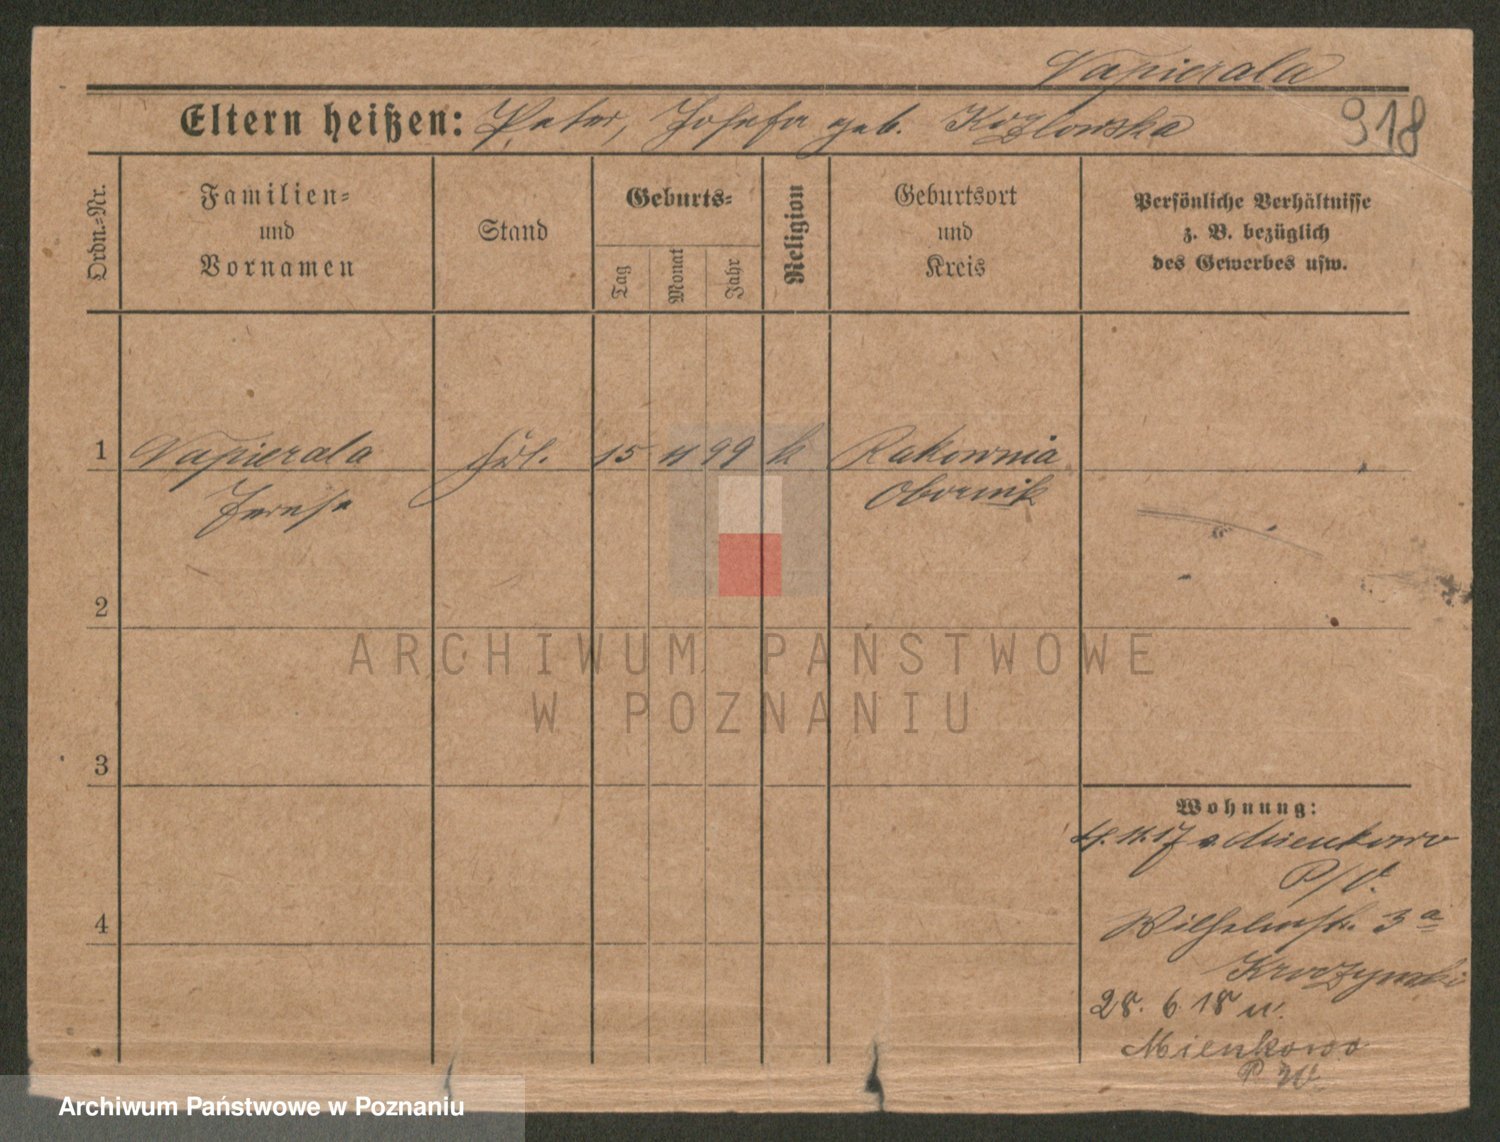 Napierala
Eltern heißen: Peter, Josefa geb. Kozlowska
918
Ordn.=Nr.
Familien=
und
Vornamen
Stand
Geburts=
Tag
Monat
Jahr
Religion
Geburtsort
und
Kreis
Persönliche Verhältnisse
z. B. bezüglich
des Gewerbes usw.
1 Napierala 15 99 k Rakownia
Obornik
2
ARCHIWUM PAŃSTWOWE
W POZNANIU
3
Wohnung:
17 v. Mienkowo
Wilhelmstr. 3a
4
28. 6. 18 n.
Mienkowo
P. W.
Archiwum Państwowe w Poznaniu